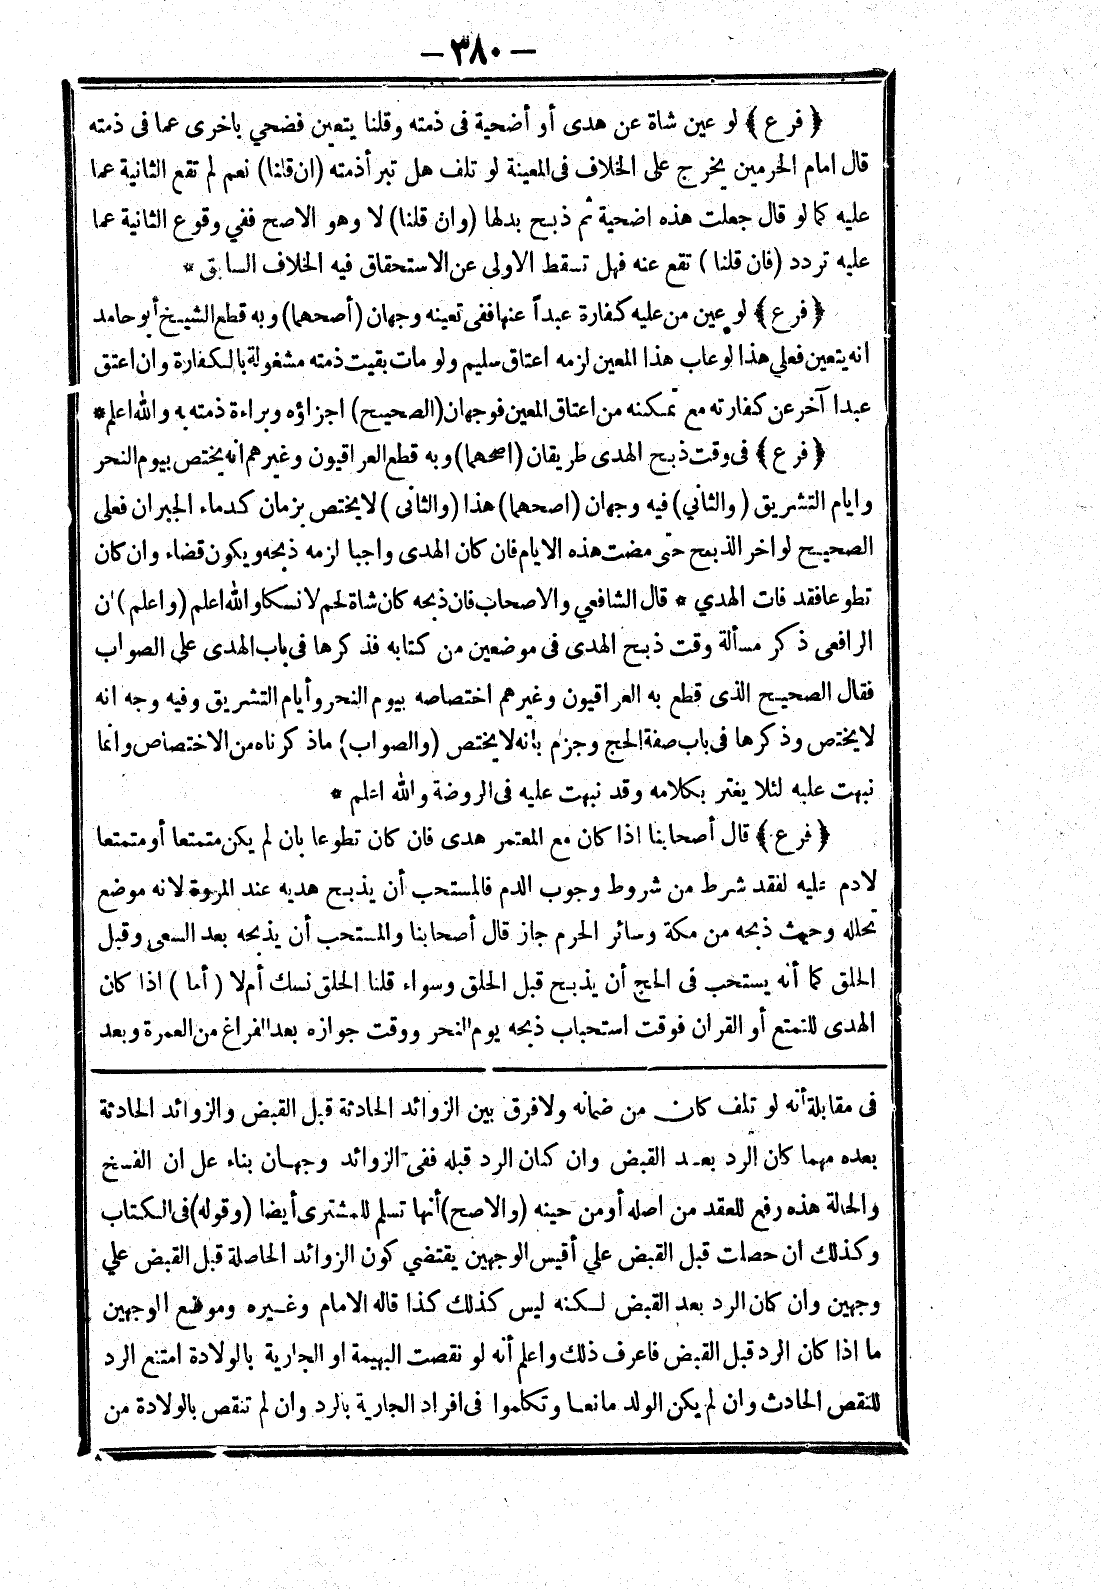 — ٣٨٠ —
﴿ فرع ﴾ لو عين شاة عن هدى أو أضحية فى ذمته وقلنا يتعين فضحي باخرى عما فى ذمته
قال امام الحرمين يخرج على الخلاف فى المعينة لو تلف هل تبرأ ذمته (ان قلنا) نعم لم تقع الثانية عما
عليه كما لو قال جعلت هذه اضحية ثم ذبح بدلها (وان قلنا) لا وهو الاصح ففي وقوع الثانية عما
عليه تردد (فان قلنا) تقع عنه فهل تسقط الاولى عن الاستحقاق فيه الخلاف السابق *
﴿ فرع ﴾ لو عين من عليه كفارة عبداً عنها ففى تعينه وجهان (أصحهما) وبه قطع الشيخ أبو حامد
انه يتعين فعلي هذا لو عاب هذا المعين لزمه اعتاق سليم ولو مات بقيت ذمته مشغولة بالكفارة وان اعتق
عبدا آخر عن كفارته مع تمكنه من اعتاق المعين فوجهان (الصحيح) اجزاؤه وبراءة ذمته به والله اعلم *
﴿ فرع ﴾ فى وقت ذبح الهدى طريقان (اصحهما) وبه قطع العراقيون وغيرهم انه يختص بيوم النحر
وايام التشريق (والثاني) فيه وجهان (اصحهما) هذا (والثانى) لا يختص بزمان كدماء الجبران فعلى
الصحيح لو اخر الذبح حتى مضت هذه الايام فان كان الهدى واجبا لزمه ذبحه ويكون قضاء وان كان
تطوعا فقد فات الهدي * قال الشافعي والاصحاب فان ذبحه كان شاة لحم لا نسكا والله اعلم (واعلم) ان
الرافعى ذكر مسألة وقت ذبح الهدى فى موضعين من كتابه فذكرها فى باب الهدى على الصواب
فقال الصحيح الذى قطع به العراقيون وغيرهم اختصاصه بيوم النحر وأيام التشريق وفيه وجه انه
لا يختص وذكرها فى باب صفة الحج وجزم بانه لا يختص (والصواب) ما ذكرناه من الاختصاص وانما
نبهت عليه لئلا يغتر بكلامه وقد نبهت عليه فى الروضة والله اعلم *
﴿ فرع ﴾ قال أصحابنا اذا كان مع المعتمر هدى فان كان تطوعا بان لم يكن متمتعا أو متمتعا
لادم عليه لفقد شرط من شروط وجوب الدم فالمستحب أن يذبح هديه عند المروة لانه موضع
تحلله وحيث ذبحه من مكة وسائر الحرم جاز قال أصحابنا والمستحب أن يذبحه بعد السعى وقبل
الحلق كما أنه يستحب فى الحج أن يذبح قبل الحلق وسواء قلنا الحلق نسك أم لا (أما) اذا كان
الهدى للتمتع أو القران فوقت استحباب ذبحه يوم النحر ووقت جوازه بعد الفراغ من العمرة وبعد
فى مقابلة أنه لو تلف كان من ضمانه ولا فرق بين الزوائد الحادثة قبل القبض والزوائد الحادثة
بعده مهما كان الرد بعد القبض وان كان الرد قبله ففى الزوائد وجهان بناء عل ان الفسخ
والحالة هذه رفع للعقد من اصله أو من حينه (والاصح) أنها تسلم للمشترى أيضا (وقوله) فى الكتاب
وكذلك ان حصلت قبل القبض علي أقيس الوجهين يقتضي كون الزوائد الحاصلة قبل القبض علي
وجهين وان كان الرد بعد القبض لكنه ليس كذلك كذا قاله الامام وغيره وموضع الوجهين
ما اذا كان الرد قبل القبض فاعرف ذلك واعلم أنه لو نقصت البهيمة او الجارية بالولادة امتنع الرد
للنقص الحادث وان لم يكن الولد مانعا وتكلموا فى افراد الجارية بالرد وان لم تنقص بالولادة من